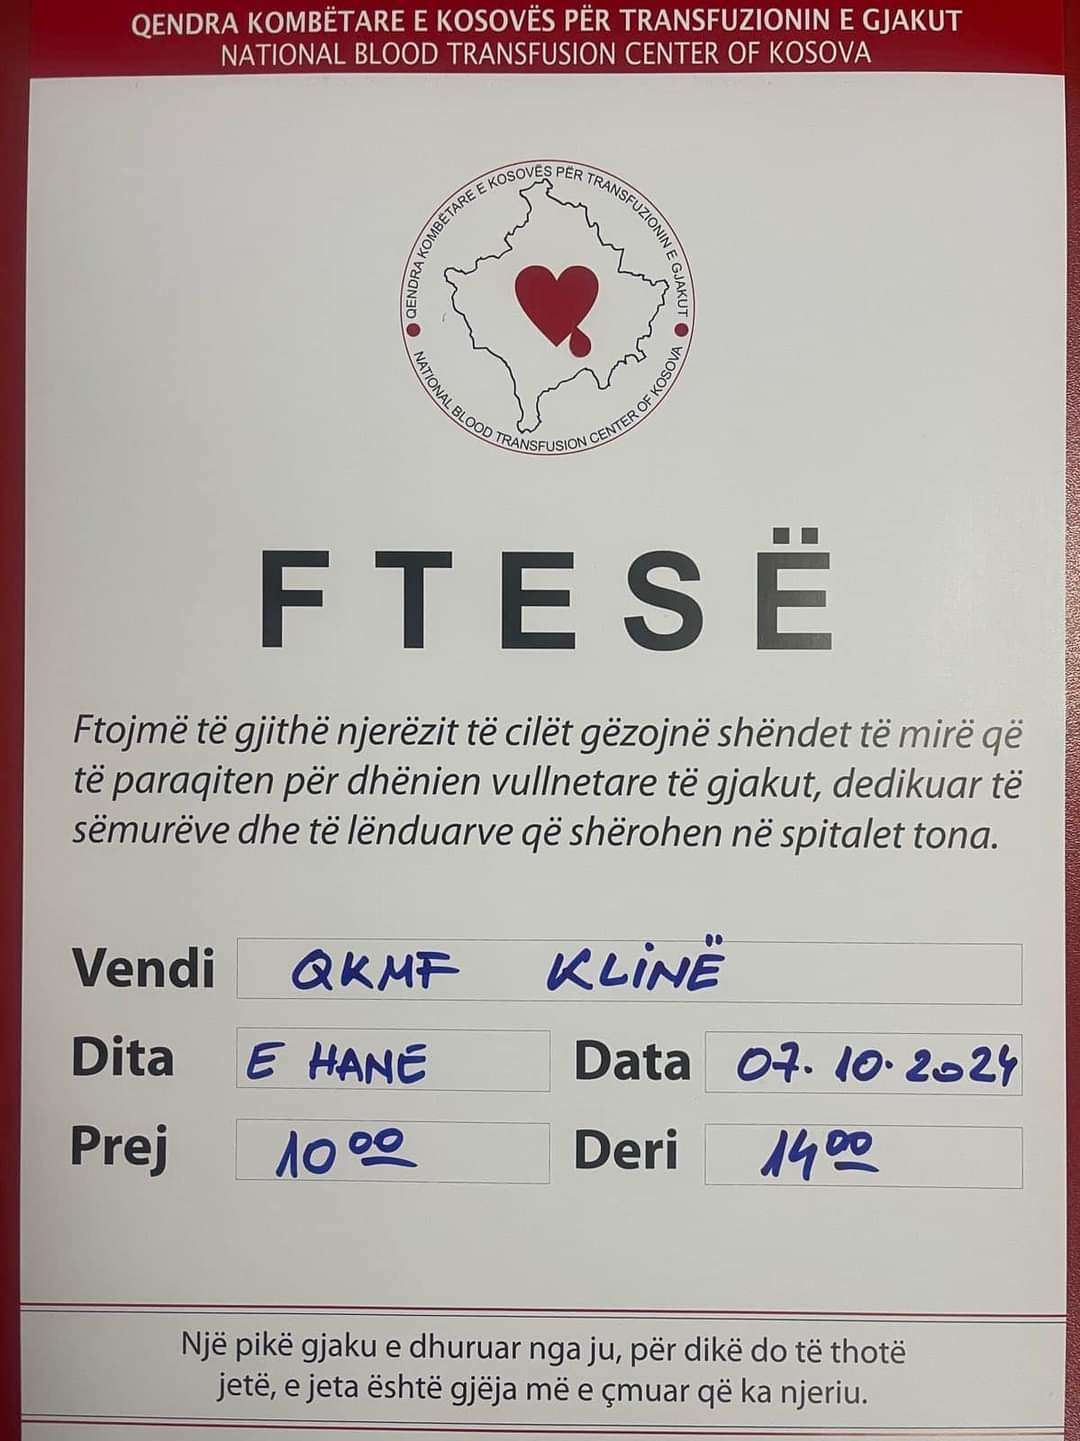 QENDRA KOMBËTARE E KOSOVËS PËR TRANSFUZIONIN E GJAKUT
NATIONAL BLOOD TRANSFUSION CENTER OF KOSOVA
QENDRA KOMBËTARE E KOSOVËS PËR TRANSFUZIONIN E GJAKUT
NATIONAL BLOOD TRANSFUSION CENTER OF KOSOVA
FTESË
Ftojmë të gjithë njerëzit të cilët gëzojnë shëndet të mirë që
të paraqiten për dhënien vullnetare të gjakut, dedikuar të
sëmurëve dhe të lënduarve që shërohen në spitalet tona.
Vendi QKMF KLINË
Dita E HANE Data 07.10.2024
Prej 10 00 Deri 14 00
Një pikë gjaku e dhuruar nga ju, për dikë do të thotë
jetë, e jeta është gjëja më e çmuar që ka njeriu.